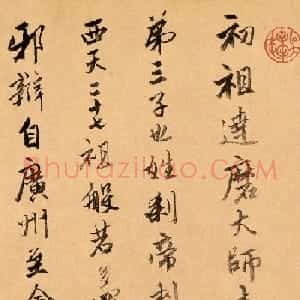 初祖達磨大師
第三子也姓刹帝利
西天二十七祖般若多羅
邪辯自廣州至金
Shufaziliao.com